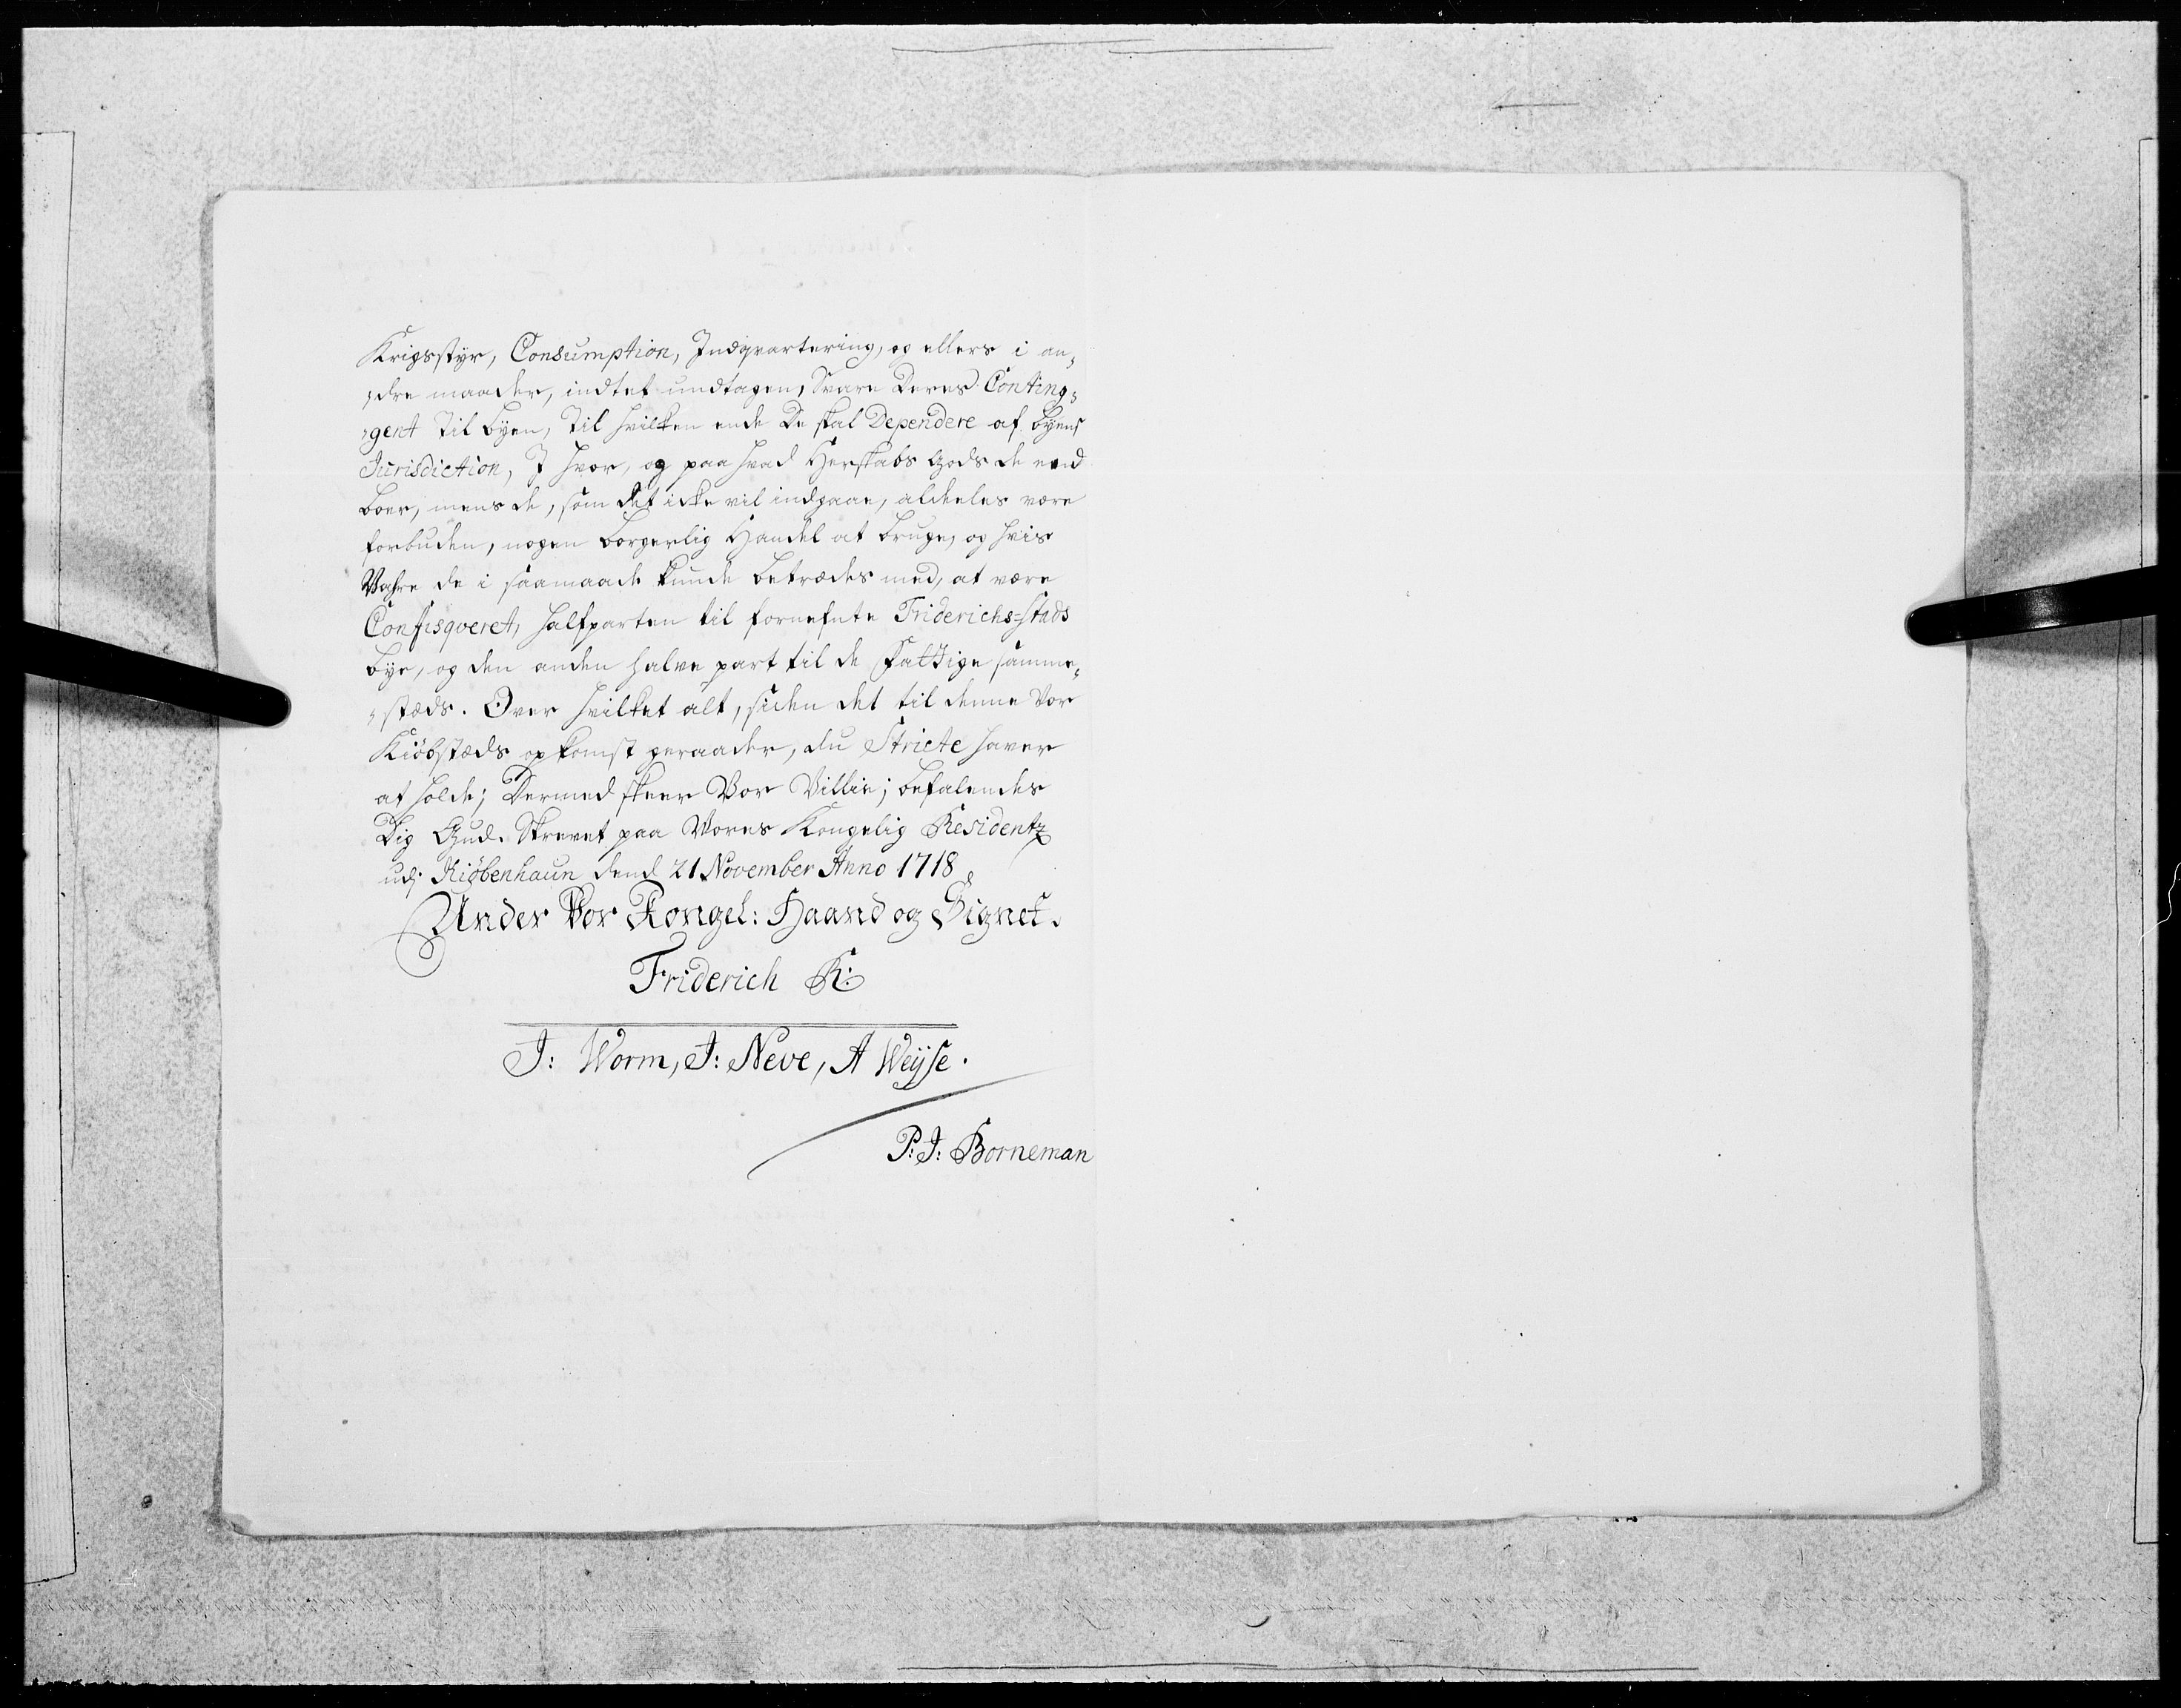 Krigsstyr, Consumption, Indqvartering, og ellers i an¬
¬dre maader, indtet undtagen, Svare Deres Conting¬
¬gent til byen, Til hvilken ende De skal Dependere af byens
Jurisdiction, I hvor, og paa hvad Herskabs Gods de end
boer, mens de, som det icke vil indgaae, aldeeles være
forbuden, nogen borgerlig Handel at bruge, og hvis
Vahre de i saamaade kunde betrædes med, at være
Confisqveret, halfparten til fornefnte Friderichs=stads
bye, og den anden halve part til de Fattige samme¬
¬stæds. Over hvilket alt, siden det til denne Vor
Kiøbstæds opkomst geraader, du Stricte haver
at holde; Dermed skeer Vor Villie; befalendes
Dig Gud. Skrevet paa Vores Kongelig Residentz
udj Kiøbenhaun dend 21 November Anno 1718
Under Vor Kongel: Haand og Signet.
Friderich R:
J: Worm, J: Neve, A Weyse.
P: J: Borneman